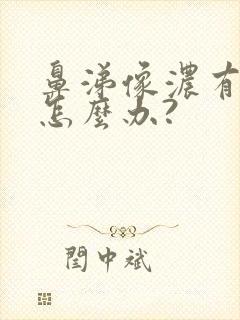 鼻涕像濃有
怎麼办?
閆中斌